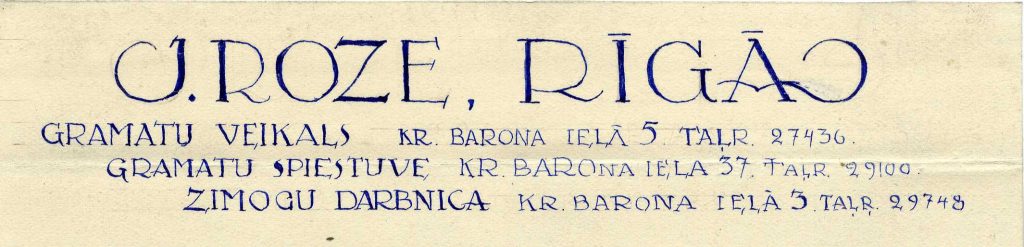 J. ROZE, RĪGĀ
GRAMATŲ VEIKALS KR. BARONA IEĻĀ 5 TAĻR. 27436.
GRAMATU SPIESTUVE KR. BARONA IEĻA 37. TAĻR. 29100.
ZIMOGU DARBNICA KR. BARONA IEĻĀ 3. TAĻR. 29748